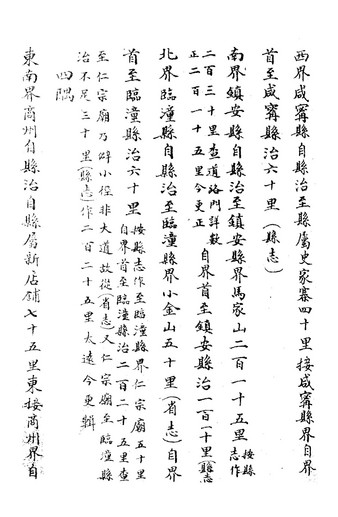 西界咸寧縣自縣治至縣屬史家寨四十里接咸寧縣界自界
首至咸寧縣治六十里(縣志)
南界鎮安縣自縣治至鎮安縣界馬家山二百一十五里按縣志作
二百三十里查道路門詳數
正二百一十五里今更正自界首至鎮安縣治一百一十里(縣志)
北界臨潼縣自縣治至臨潼縣界小金山五十里(省志)自界
首至臨潼縣治六十里按縣志作至臨潼縣界仁宗廟五十里
自界首至臨潼縣治二百二十五里查
至仁宗廟乃僻小徑非大道故從(省志)又仁宗廟至臨潼縣
治不足三十里(縣志)作二百二十五里太遠今更輯
四隅
東南界商州自縣治自縣屬新店鋪七十五里東接商州界自